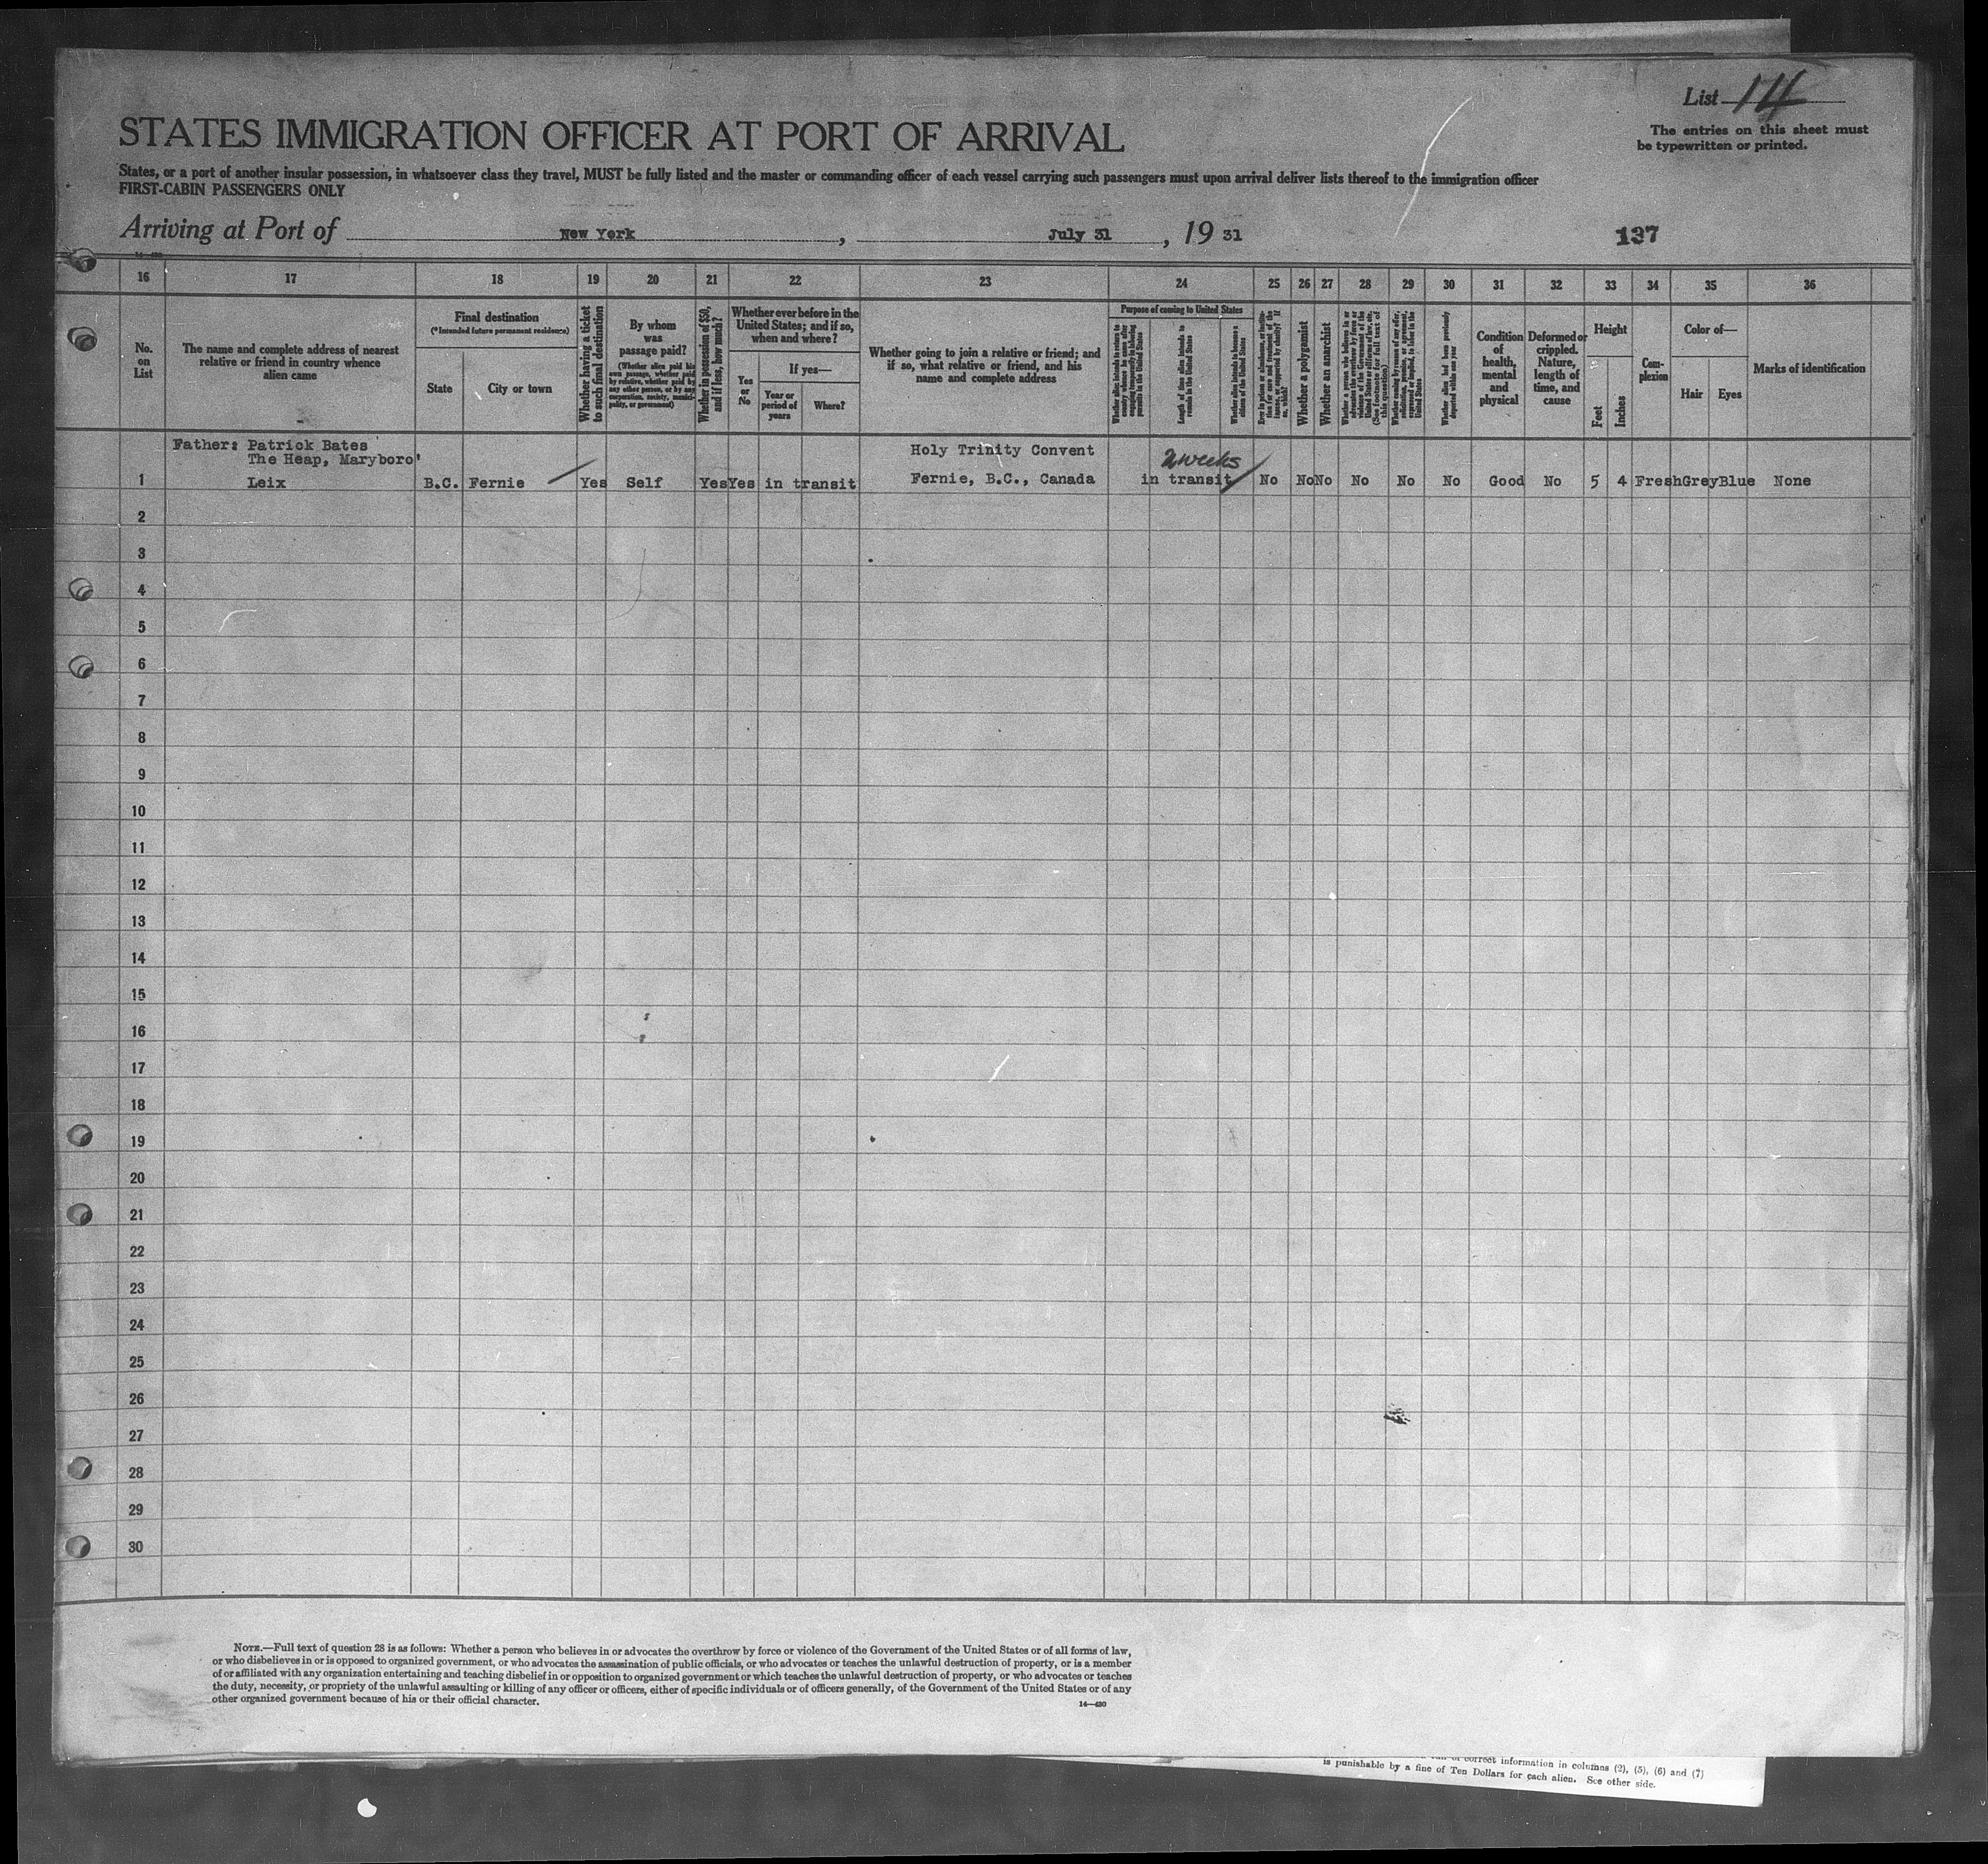 List 14
The entries on this sheet must
be typewritten or printed.
STATES IMMIGRATION OFFICER AT PORT OF ARRIVAL
States, or a port of another insular possession, in whatsoever class they travel, MUST be fully listed and the master or commanding officer of each vessel carrying such passengers must upon arrival deliver lists thereof to the immigration officer
FIRST-CABIN PASSENGERS ONLY
Arriving at Port of New York, July 31, 19 31
137
16 17 18 19 20 21 22 23 24 25 26 27 28 29 30 31 32 33 34 35 36
No. on List
The name and complete address of nearest relative or friend in country whence alien came
Final destination
(*Intended future permanent residence)
State
City or town
Whether having a ticket to such final destination
By whom was passage paid?
(Whether alien paid his own passage, whether paid by relative, whether paid by any other person, or by any corporation, society, municipality, or government)
Whether in possession of $50, and if less, how much?
Whether ever before in the United States; and if so, when and where?
Yes or No
If yes—
Year or period of years
Where?
Whether going to join a relative or friend; and if so, what relative or friend, and his name and complete address
Purpose of coming to United States
Length of time alien intends to remain in the United States
Whether alien intends to become a citizen of the United States
Whether a polygamist
Whether an anarchist
Whether alien had been previously deported within one year
Condition of health, mental and physical
Deformed or crippled. Nature, length of time, and cause
Height
Feet
Inches
Com-plexion
Color of—
Hair
Eyes
Marks of identification
Father: Patrick Bates
The Heap, Maryboro'
Holy Trinity Convent
2 weeks
1 Leix B.C. Fernie Yes Self Yes Yes in transit Fernie, B.C., Canada in transit No No No No No No Good No 5 4 Fresh Grey Blue None
2
3
4
5
6
7
8
9
10
11
12
13
14
15
16
17
18
19
20
21
22
23
24
25
26
27
28
29
30
NOTE.—Full text of question 28 is as follows: Whether a person who believes in or advocates the overthrow by force or violence of the Government of the United States or of all forms of law,
or who disbelieves in or is opposed to organized government, or who advocates the assassination of public officials, or who advocates or teaches the unlawful destruction of property, or is a member
of or affiliated with any organization entertaining and teaching disbelief in or opposition to organized government or which teaches the unlawful destruction of property, or who advocates or teaches
the duty, necessity, or propriety of the unlawful assaulting or killing of any officer or officers, either of specific individuals or of officers generally, of the Government of the United States or of any
other organized government because of his or their official character.
14—430
correct information in columns (2), (5), (6) and (7)
is punishable by a fine of Ten Dollars for each alien. See other side.